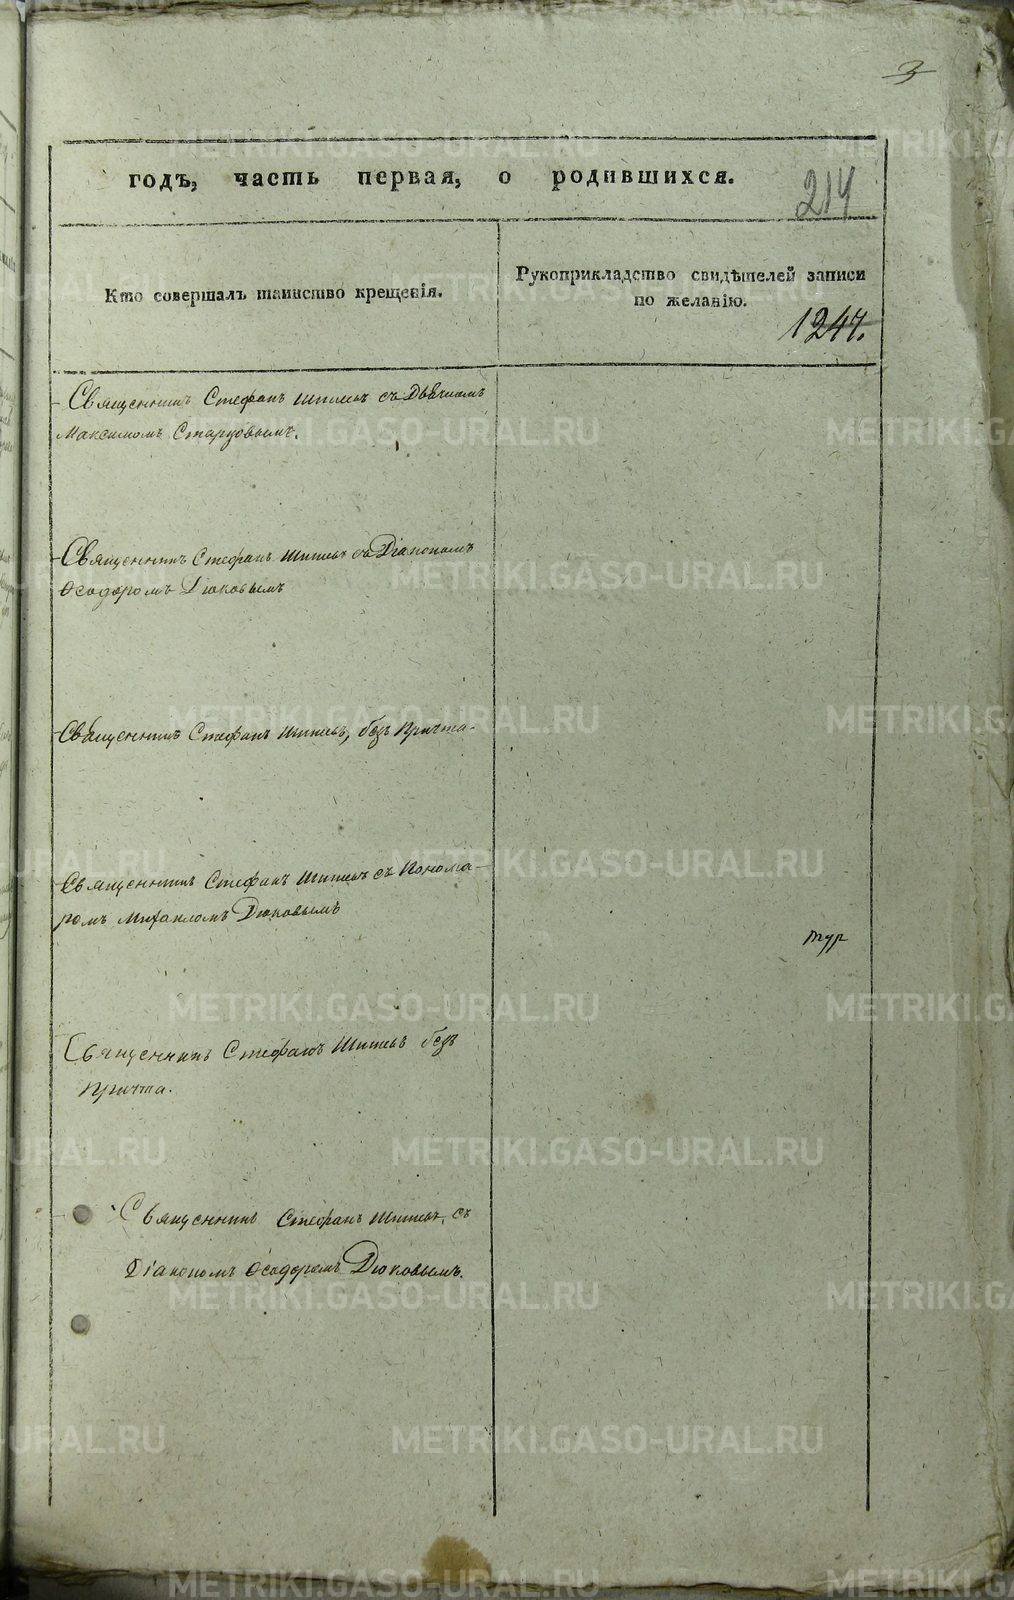 3
годъ, часть первая, о родившихся.
214
Кто совершалъ таинство крещенія.
Рукоприкладство свидѣтелей записи
по желанію.
1247.
Священникъ Стефанъ Шишевъ съ Дьячкомъ
Максимомъ
Священникъ Стефанъ Шишевъ съ Діакономъ
Ѳеодоромъ Дюковымъ
Священникъ Стефанъ Шишевъ, безъ Причта.
Священникъ Стефанъ Шишевъ съ Понома-
ромъ Михаиломъ Дюковымъ
тур
Священникъ Стефанъ Шишевъ безъ
Причта.
Священникъ Стефанъ Шишевъ, съ
Діакономъ Ѳеодоромъ Дюковымъ.
METRIKI.GASO-URAL.RU